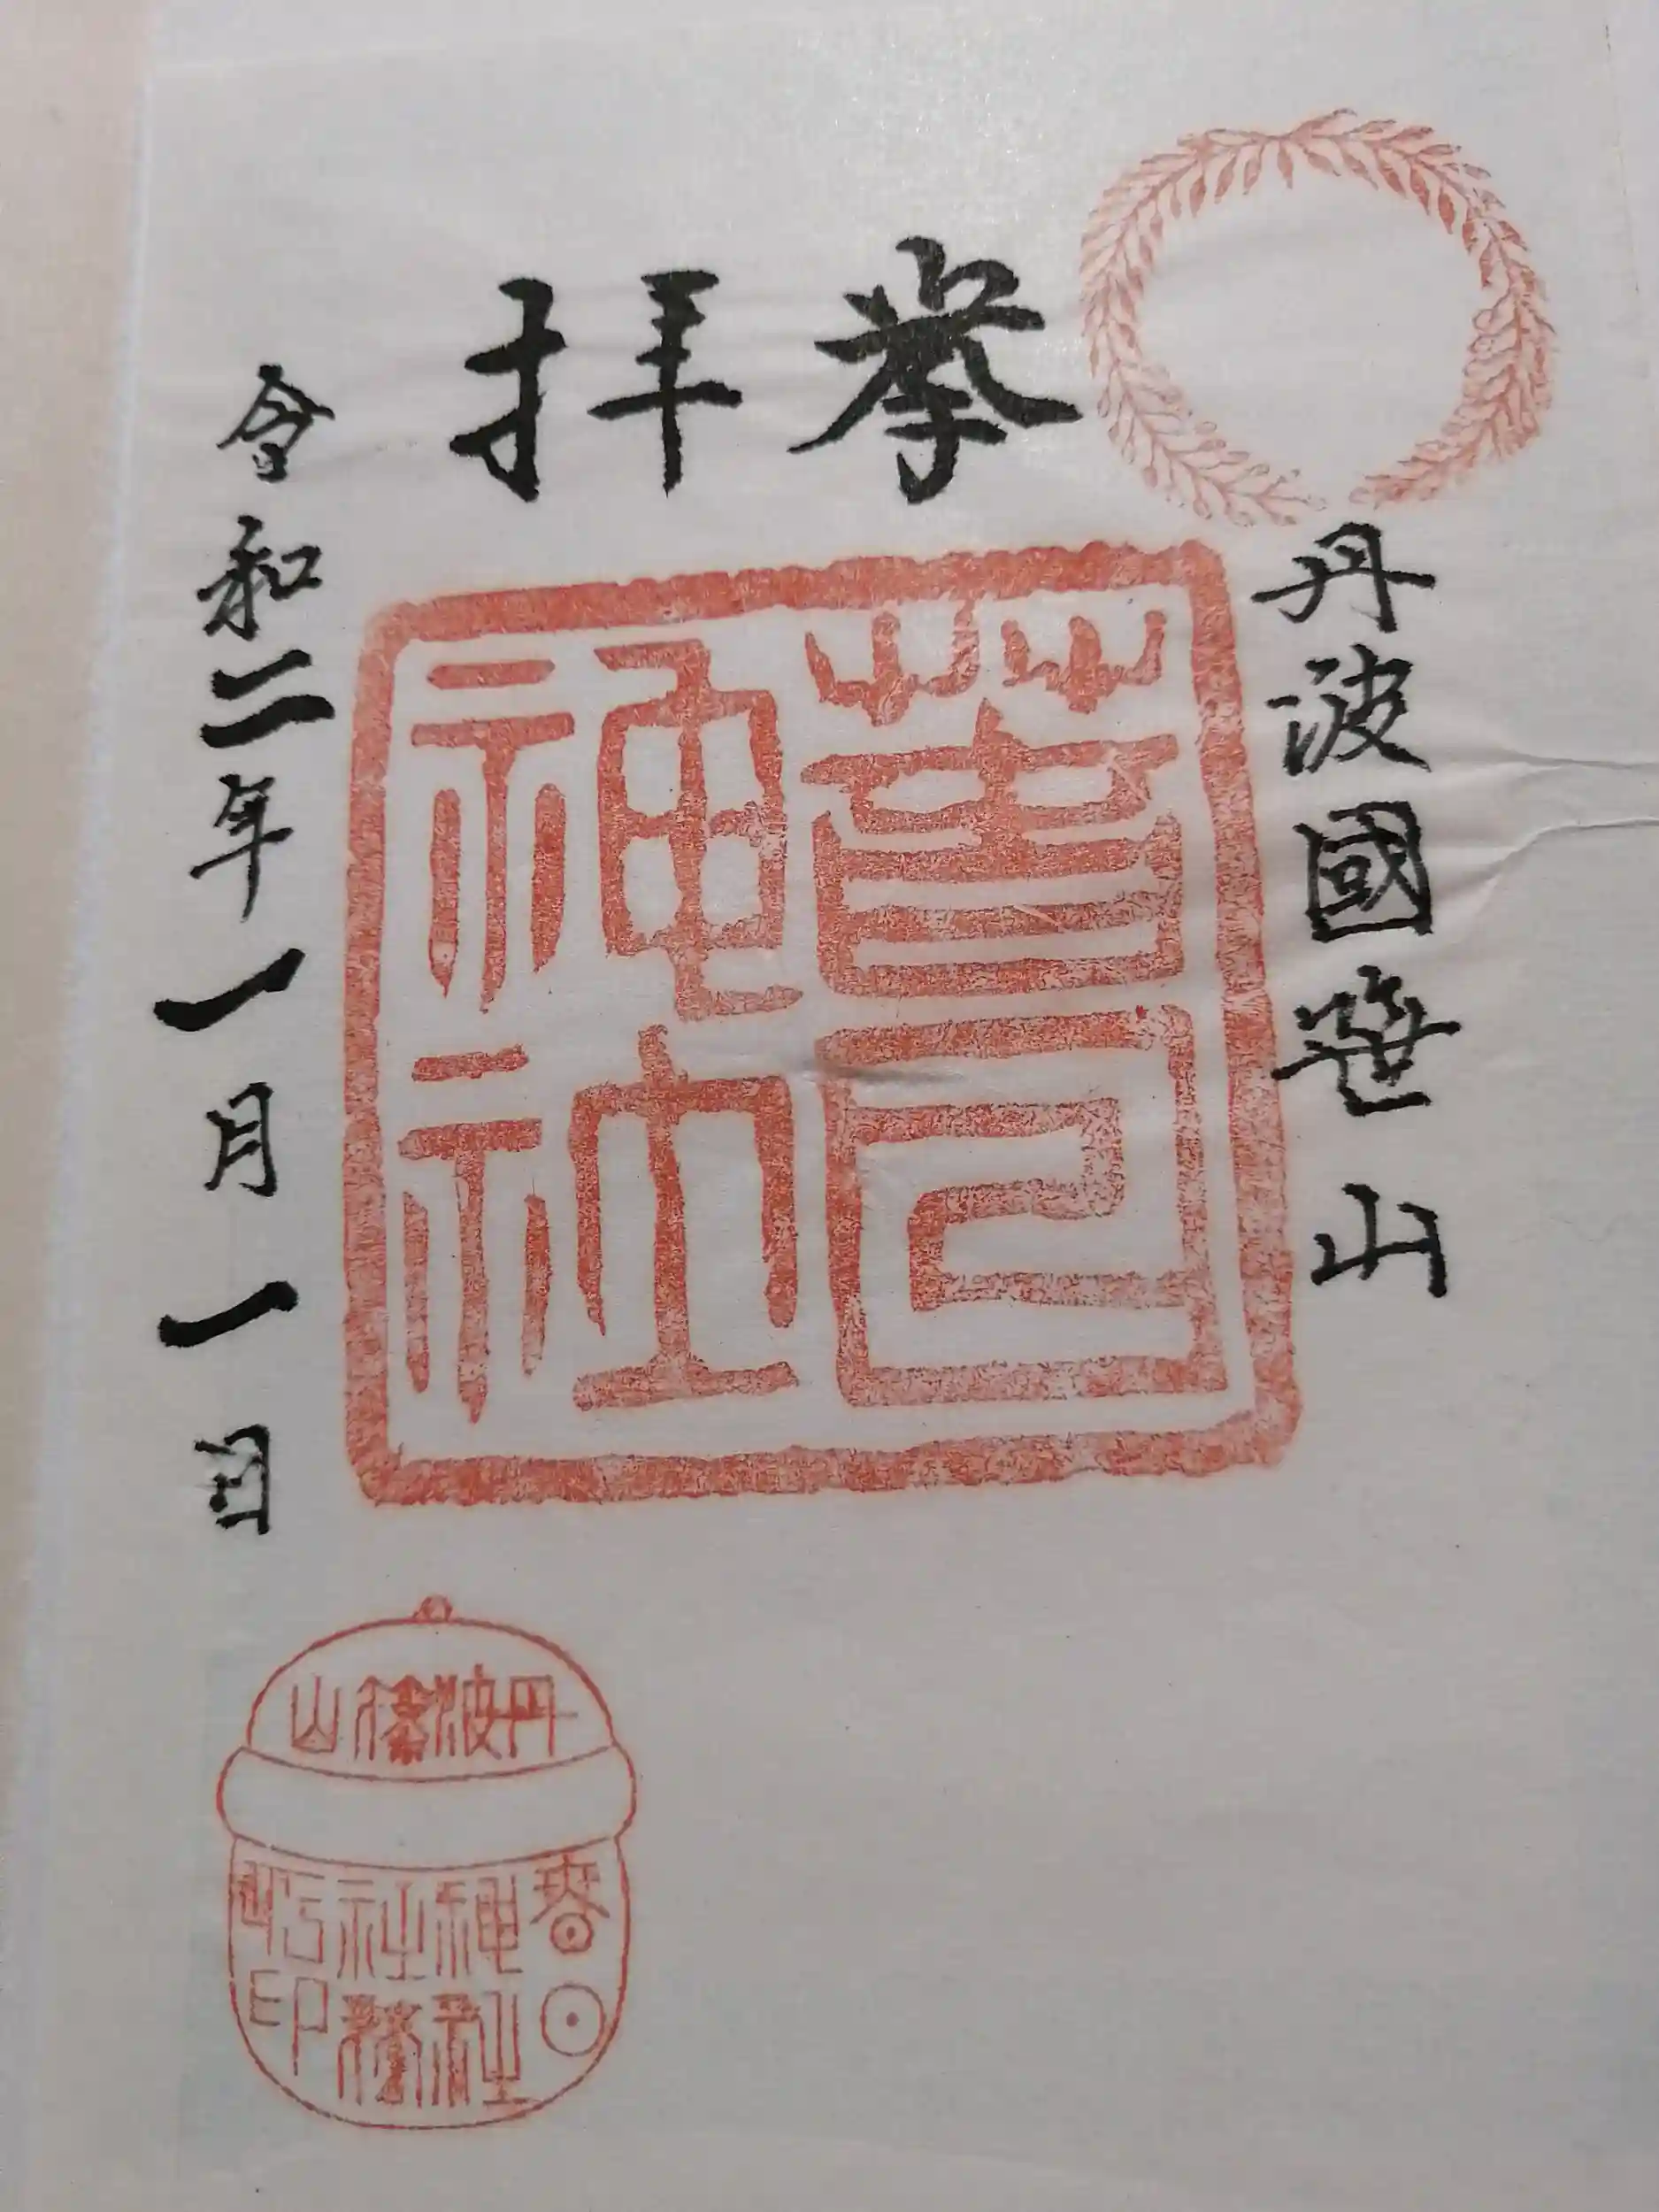 奉拝
丹波國笹山
春日
神社
令和二年一月一日
丹波篠山
春日
神社
社務
所印